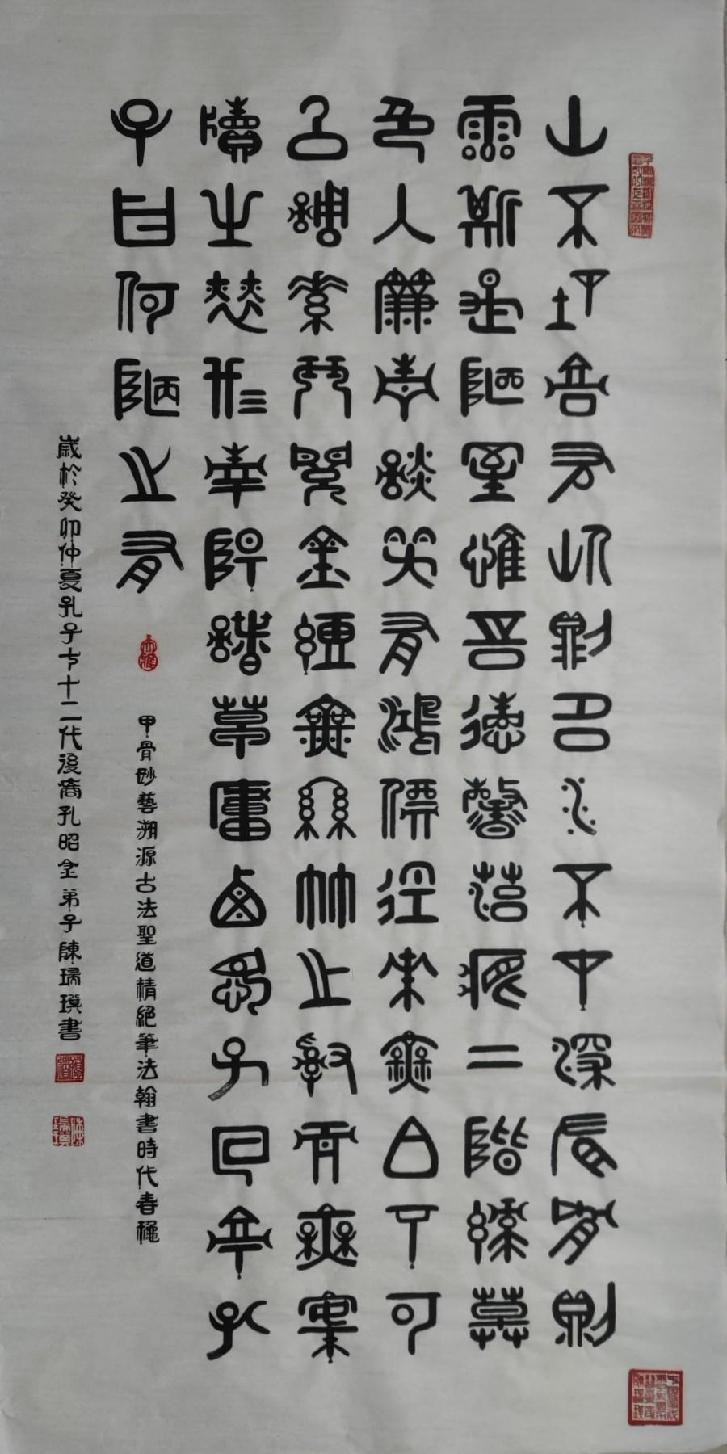 山不在高有仙則名水不在深有龍則
靈斯是陋室惟吾德馨苔痕上階綠草
色入簾青談笑有鴻儒往來無白丁可
以調素琴閱金經無絲竹之亂耳無案
牘之勞形南陽諸葛廬西蜀子云亭孔
子曰何陋之有
甲骨妙藝溯源古法聖道情絕筆法翰書時代春穐
歲於癸卯仲夏孔子七十二代後裔孔昭金弟子陳瑞璞書